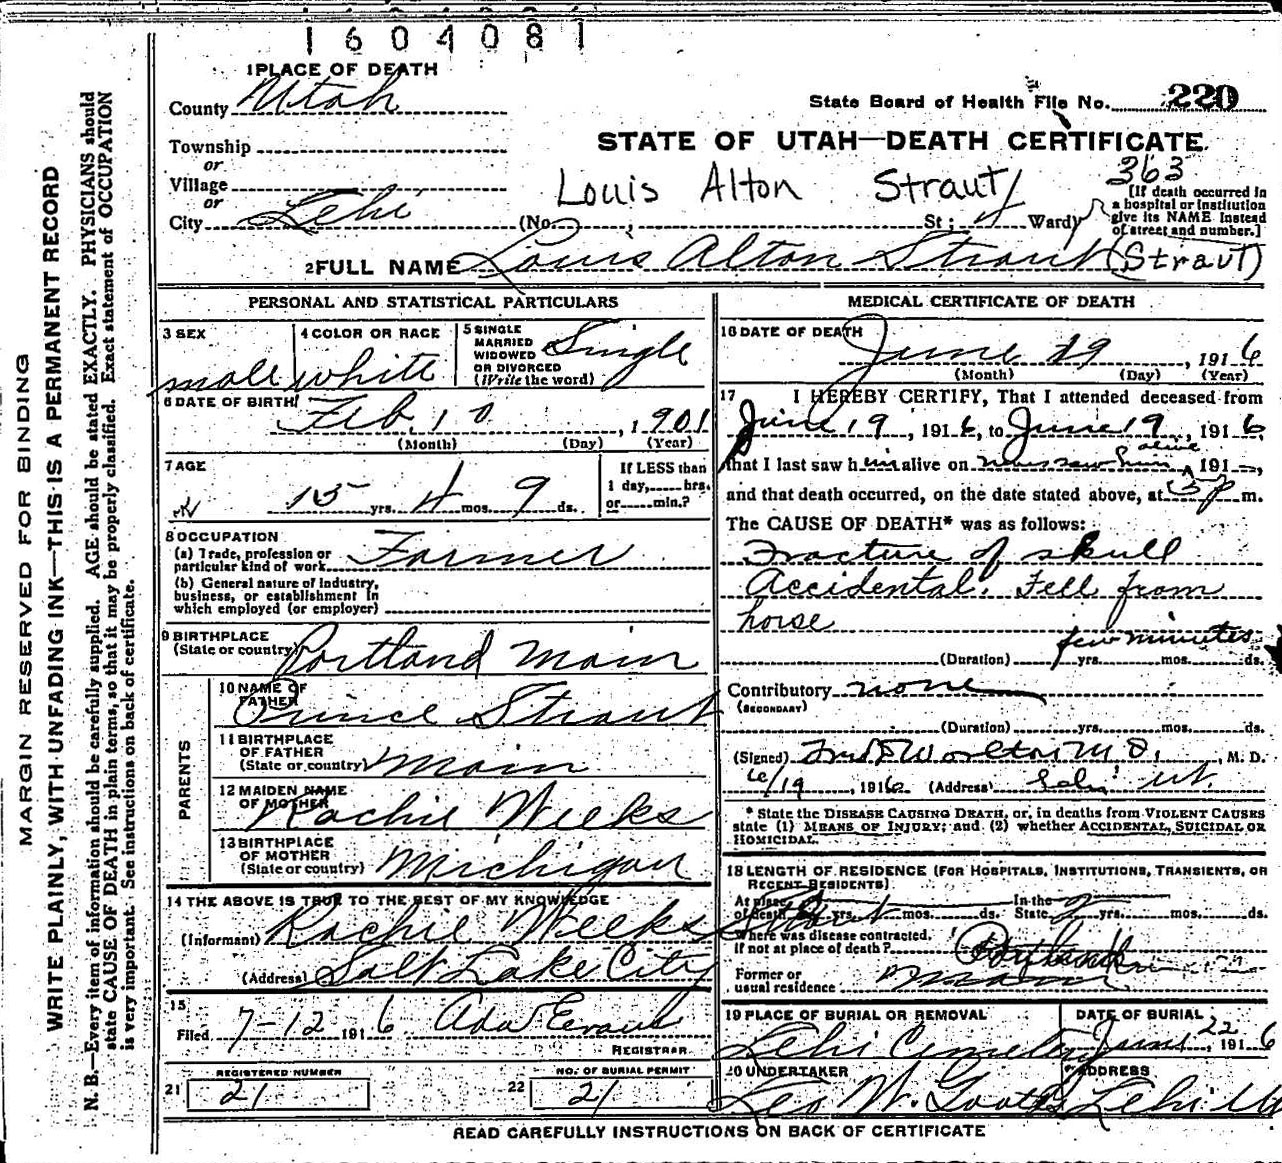 1604081
1 PLACE OF DEATH
County Utah
State Board of Health File No. 220
Township
STATE OF UTAH—DEATH CERTIFICATE
or
Village
Louis Alton Straut
363
or
City Lehi (No. ; St; 4 Ward)
[If death occurred in
a hospital or institution
give its NAME instead
of street and number.]
2 FULL NAME Louis Alton Straut (Straut)
PERSONAL AND STATISTICAL PARTICULARS
3 SEX male
4 COLOR OR RACE white
5 SINGLE
MARRIED
WIDOWED
OR DIVORCED
(Write the word) Single
6 DATE OF BIRTH Feb. 10, 1901
(Month) (Day) (Year)
7 AGE
15 yrs. 4 mos. 9 ds.
If LESS than
1 day, hrs.
or min.?
8 OCCUPATION
(a) Trade, profession or
particular kind of work Farmer
(b) General nature of industry,
business, or establishment in
which employed (or employer)
9 BIRTHPLACE
(State or country) Portland Main
PARENTS
10 NAME OF
FATHER Prince Straut
11 BIRTHPLACE
OF FATHER
(State or country) Main
12 MAIDEN NAME
OF MOTHER Rachie Weeks
13 BIRTHPLACE
OF MOTHER
(State or country) Michigan
14 THE ABOVE IS TRUE TO THE BEST OF MY KNOWLEDGE
(Informant) Rachie Weeks
(Address) Salt Lake City
15
Filed 7-12 1916
REGISTRAR
REGISTERED NUMBER
21 21
NO. OF BURIAL PERMIT
22 21
MEDICAL CERTIFICATE OF DEATH
16 DATE OF DEATH
June 19, 1916
(Month) (Day) (Year)
17 I HEREBY CERTIFY, That I attended deceased from
June 19, 1916, to June 19, 1916,
that I last saw him alive on never saw him alive 191 ,
and that death occurred, on the date stated above, at 3 p m.
The CAUSE OF DEATH* was as follows:
Fracture of skull
Accidental. Fell from
horse
few minutes
(Duration) yrs. mos. ds.
Contributory none
(SECONDARY)
(Duration) yrs. mos. ds.
(Signed) M.D., M. D.
6/19, 1916 (Address) Lehi Ut.
* State the DISEASE CAUSING DEATH, or, in deaths from VIOLENT CAUSES
state (1) MEANS OF INJURY; and (2) whether ACCIDENTAL, SUICIDAL OR
HOMICIDAL.
18 LENGTH OF RESIDENCE (FOR HOSPITALS, INSTITUTIONS, TRANSIENTS, OR
RECENT RESIDENTS)
At place In the
of death yrs. mos. ds. State 2 yrs. mos. ds.
Where was disease contracted,
if not at place of death?
Former or
usual residence
19 PLACE OF BURIAL OR REMOVAL
Lehi Cemetery
DATE OF BURIAL
June 22, 1916
20 UNDERTAKER
Leo W. Goates
ADDRESS
Lehi Ut
READ CAREFULLY INSTRUCTIONS ON BACK OF CERTIFICATE
MARGIN RESERVED FOR BINDING
WRITE PLAINLY, WITH UNFADING INK—THIS IS A PERMANENT RECORD
N. B.—Every item of information should be carefully supplied. AGE should be stated EXACTLY. PHYSICIANS should
state CAUSE OF DEATH in plain terms, so that it may be properly classified. Exact statement of OCCUPATION
is very important. See instructions on back of certificate.